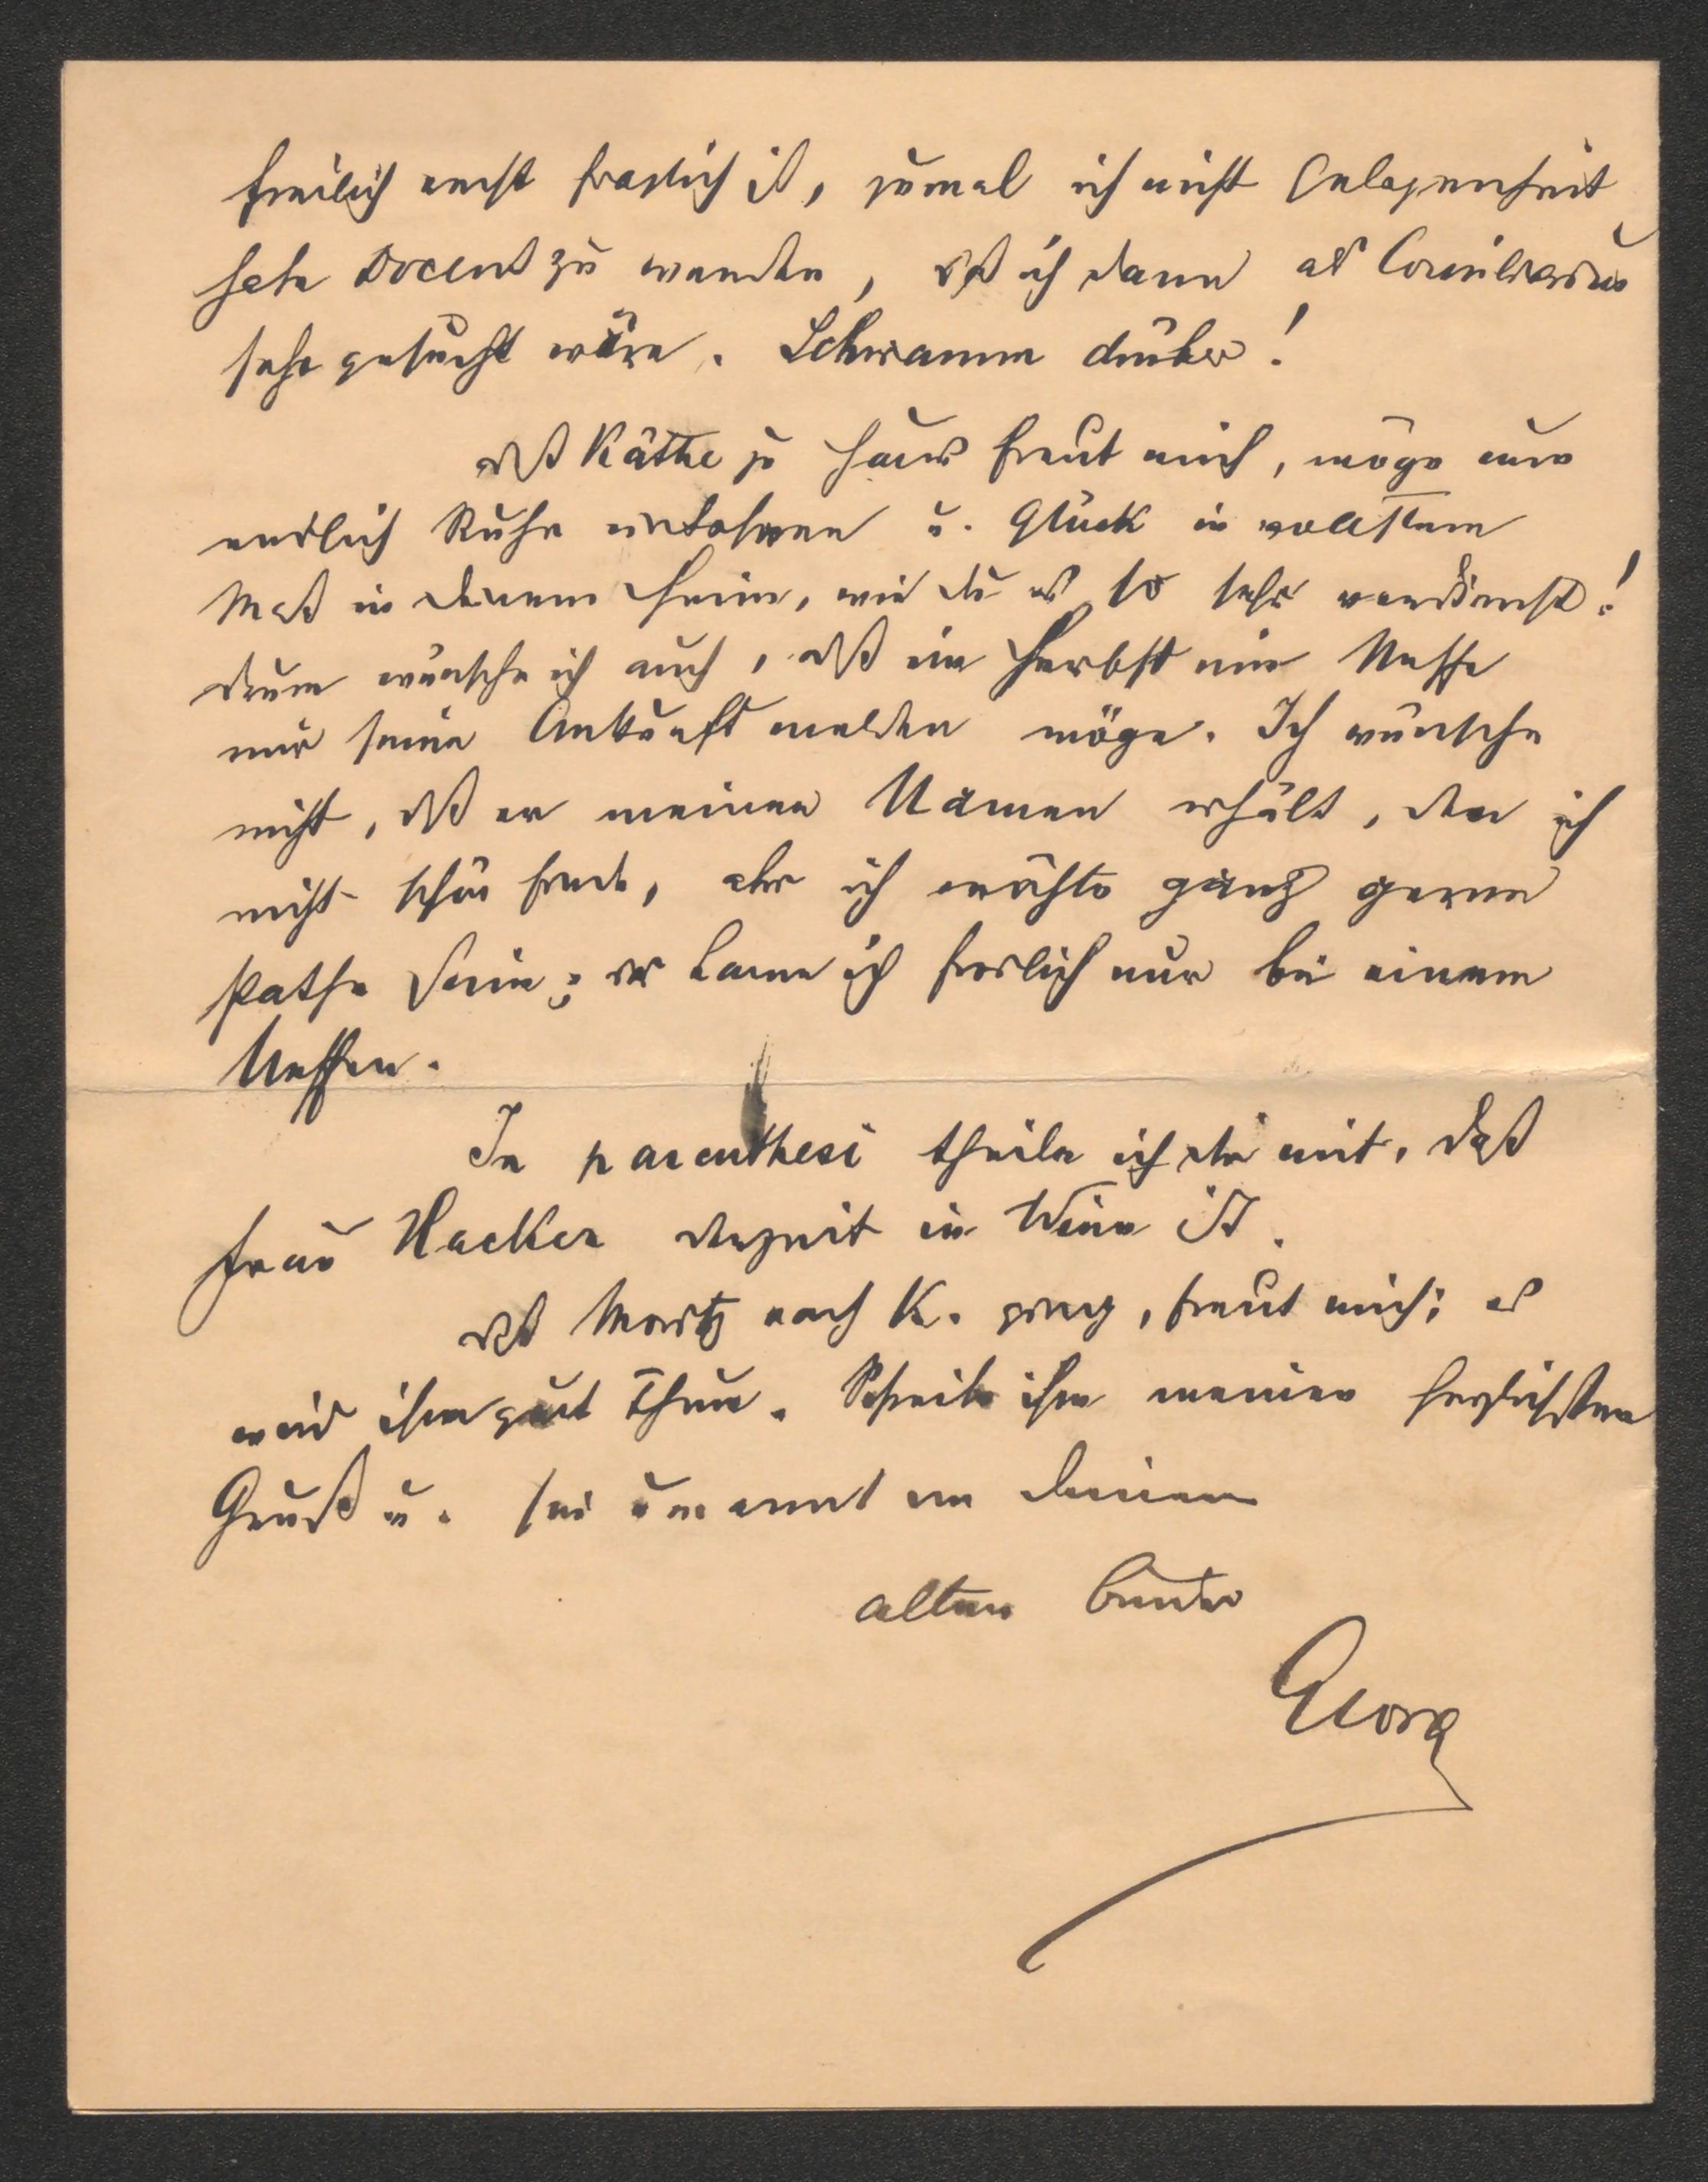 freilich recht fraglich ist, zumal ich nicht Gelegenheit
habe Docent zu werden, daß ich dann als Consiliarius
sehr gesucht wäre. Schwamm drüber!
daß Käthe zu Haus freut mich, möge nun
endlich Ruhe u. Glück in vollstem
Maß in deinem Heim, wie du es so sehr verdienst!
drum wünsche ich auch, daß im Herbst ein Neffe
mir seine Ankunft melden möge. Ich wünsche
nicht, daß er meinen Namen erhält, den ich
nicht schön finde, aber ich möchte ganz gerne
Pathe sein; das kann ich freilich nur bei einem
Neffen.
In parenthesi theile ich dir mit, daß
Frau Hacker derzeit in Wien ist.
daß Moritz nach K. ging, freut mich; es
wird ihm gut thun. Schreibe ihm meinen herzlichsten
Gruß u. sei umarmt von deinem
alten Bruder
Georg